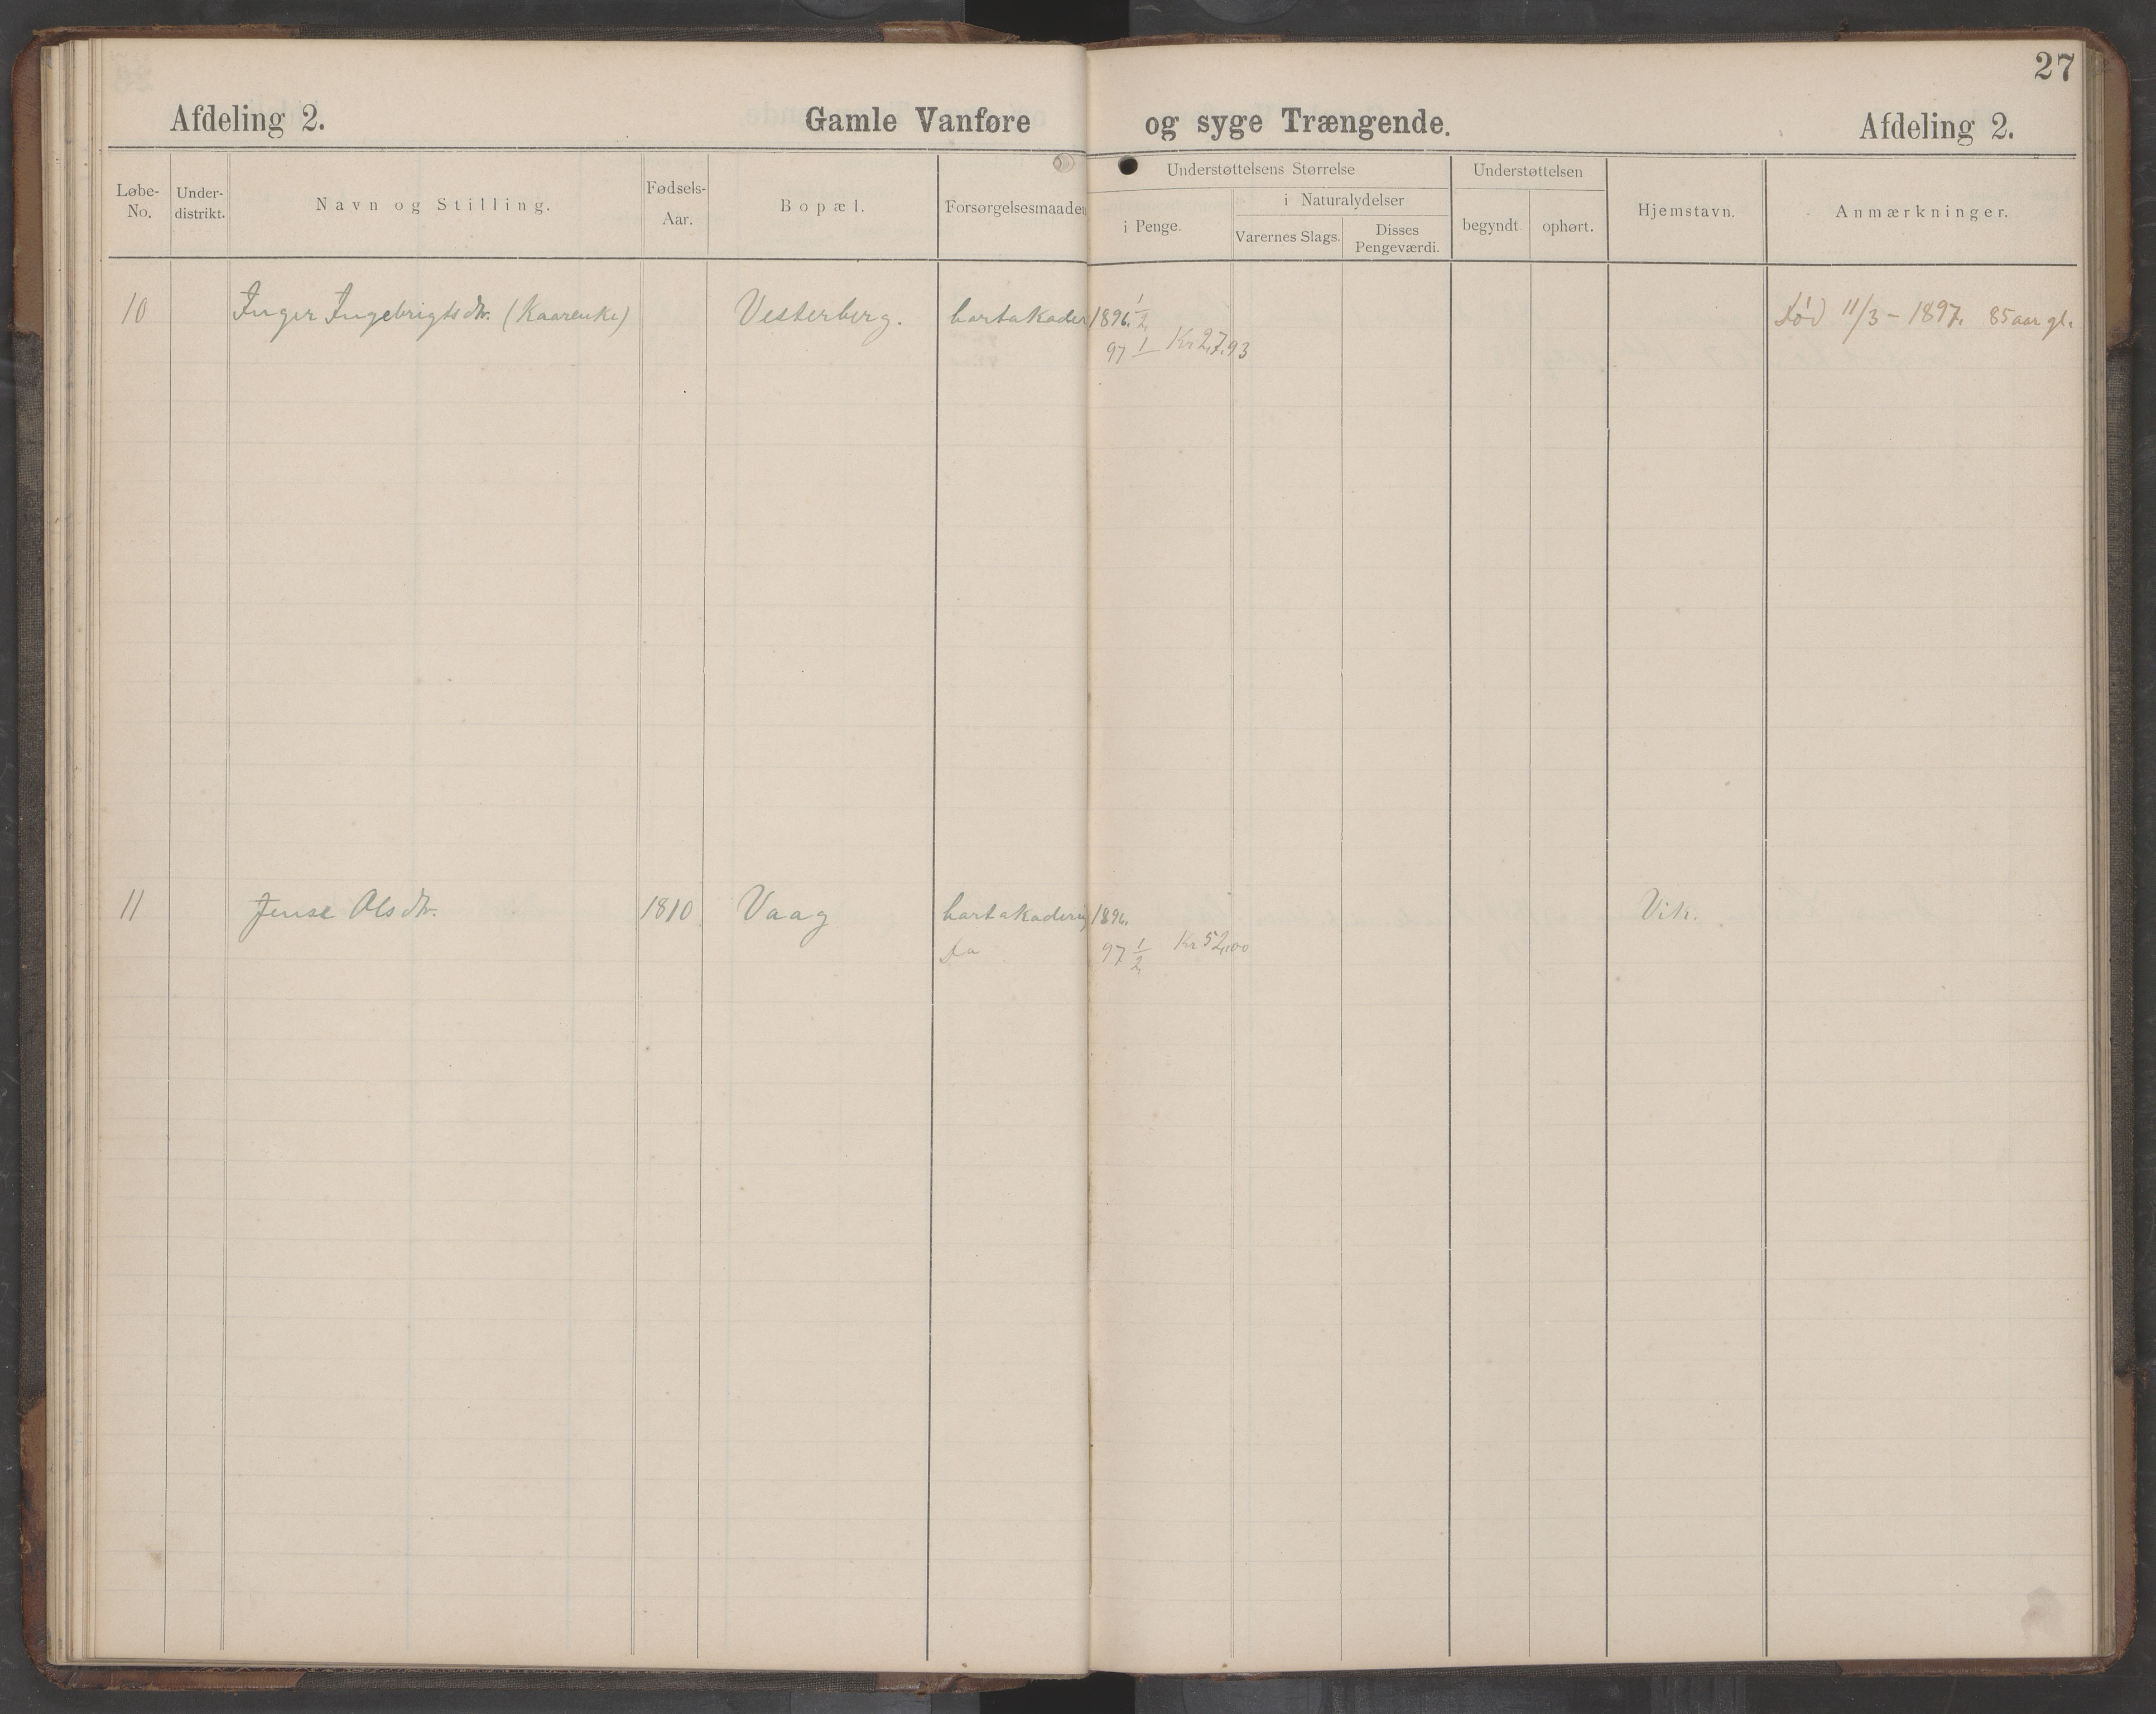 27
Afdeling 2. Gamle Vanføre og syge Trængende. Afdeling 2.
Løbe-No. Under-distrikt. Navn og Stilling. Fødsels-Aar. Bopæl. Forsørgelsesmaaden
Understøttelsens Størrelse
i Penge.
i Naturalydelser
Varernes Slags. Disses Pengeværdi.
Understøttelsen
begyndt. ophørt.
Hjemstavn. Anmærkninger.
10 Inger Ingebrigtsdtr. (Kaarenke) Vesterberg. bortakkorder 1896. 1/2 Død 11/3 - 1897. 85 aar gl.
97 1 Kr 27,93
11 Jense Olsdtr. 1810 Vaag 1896. Vik.
Do 97 1/2 Kr 52,00